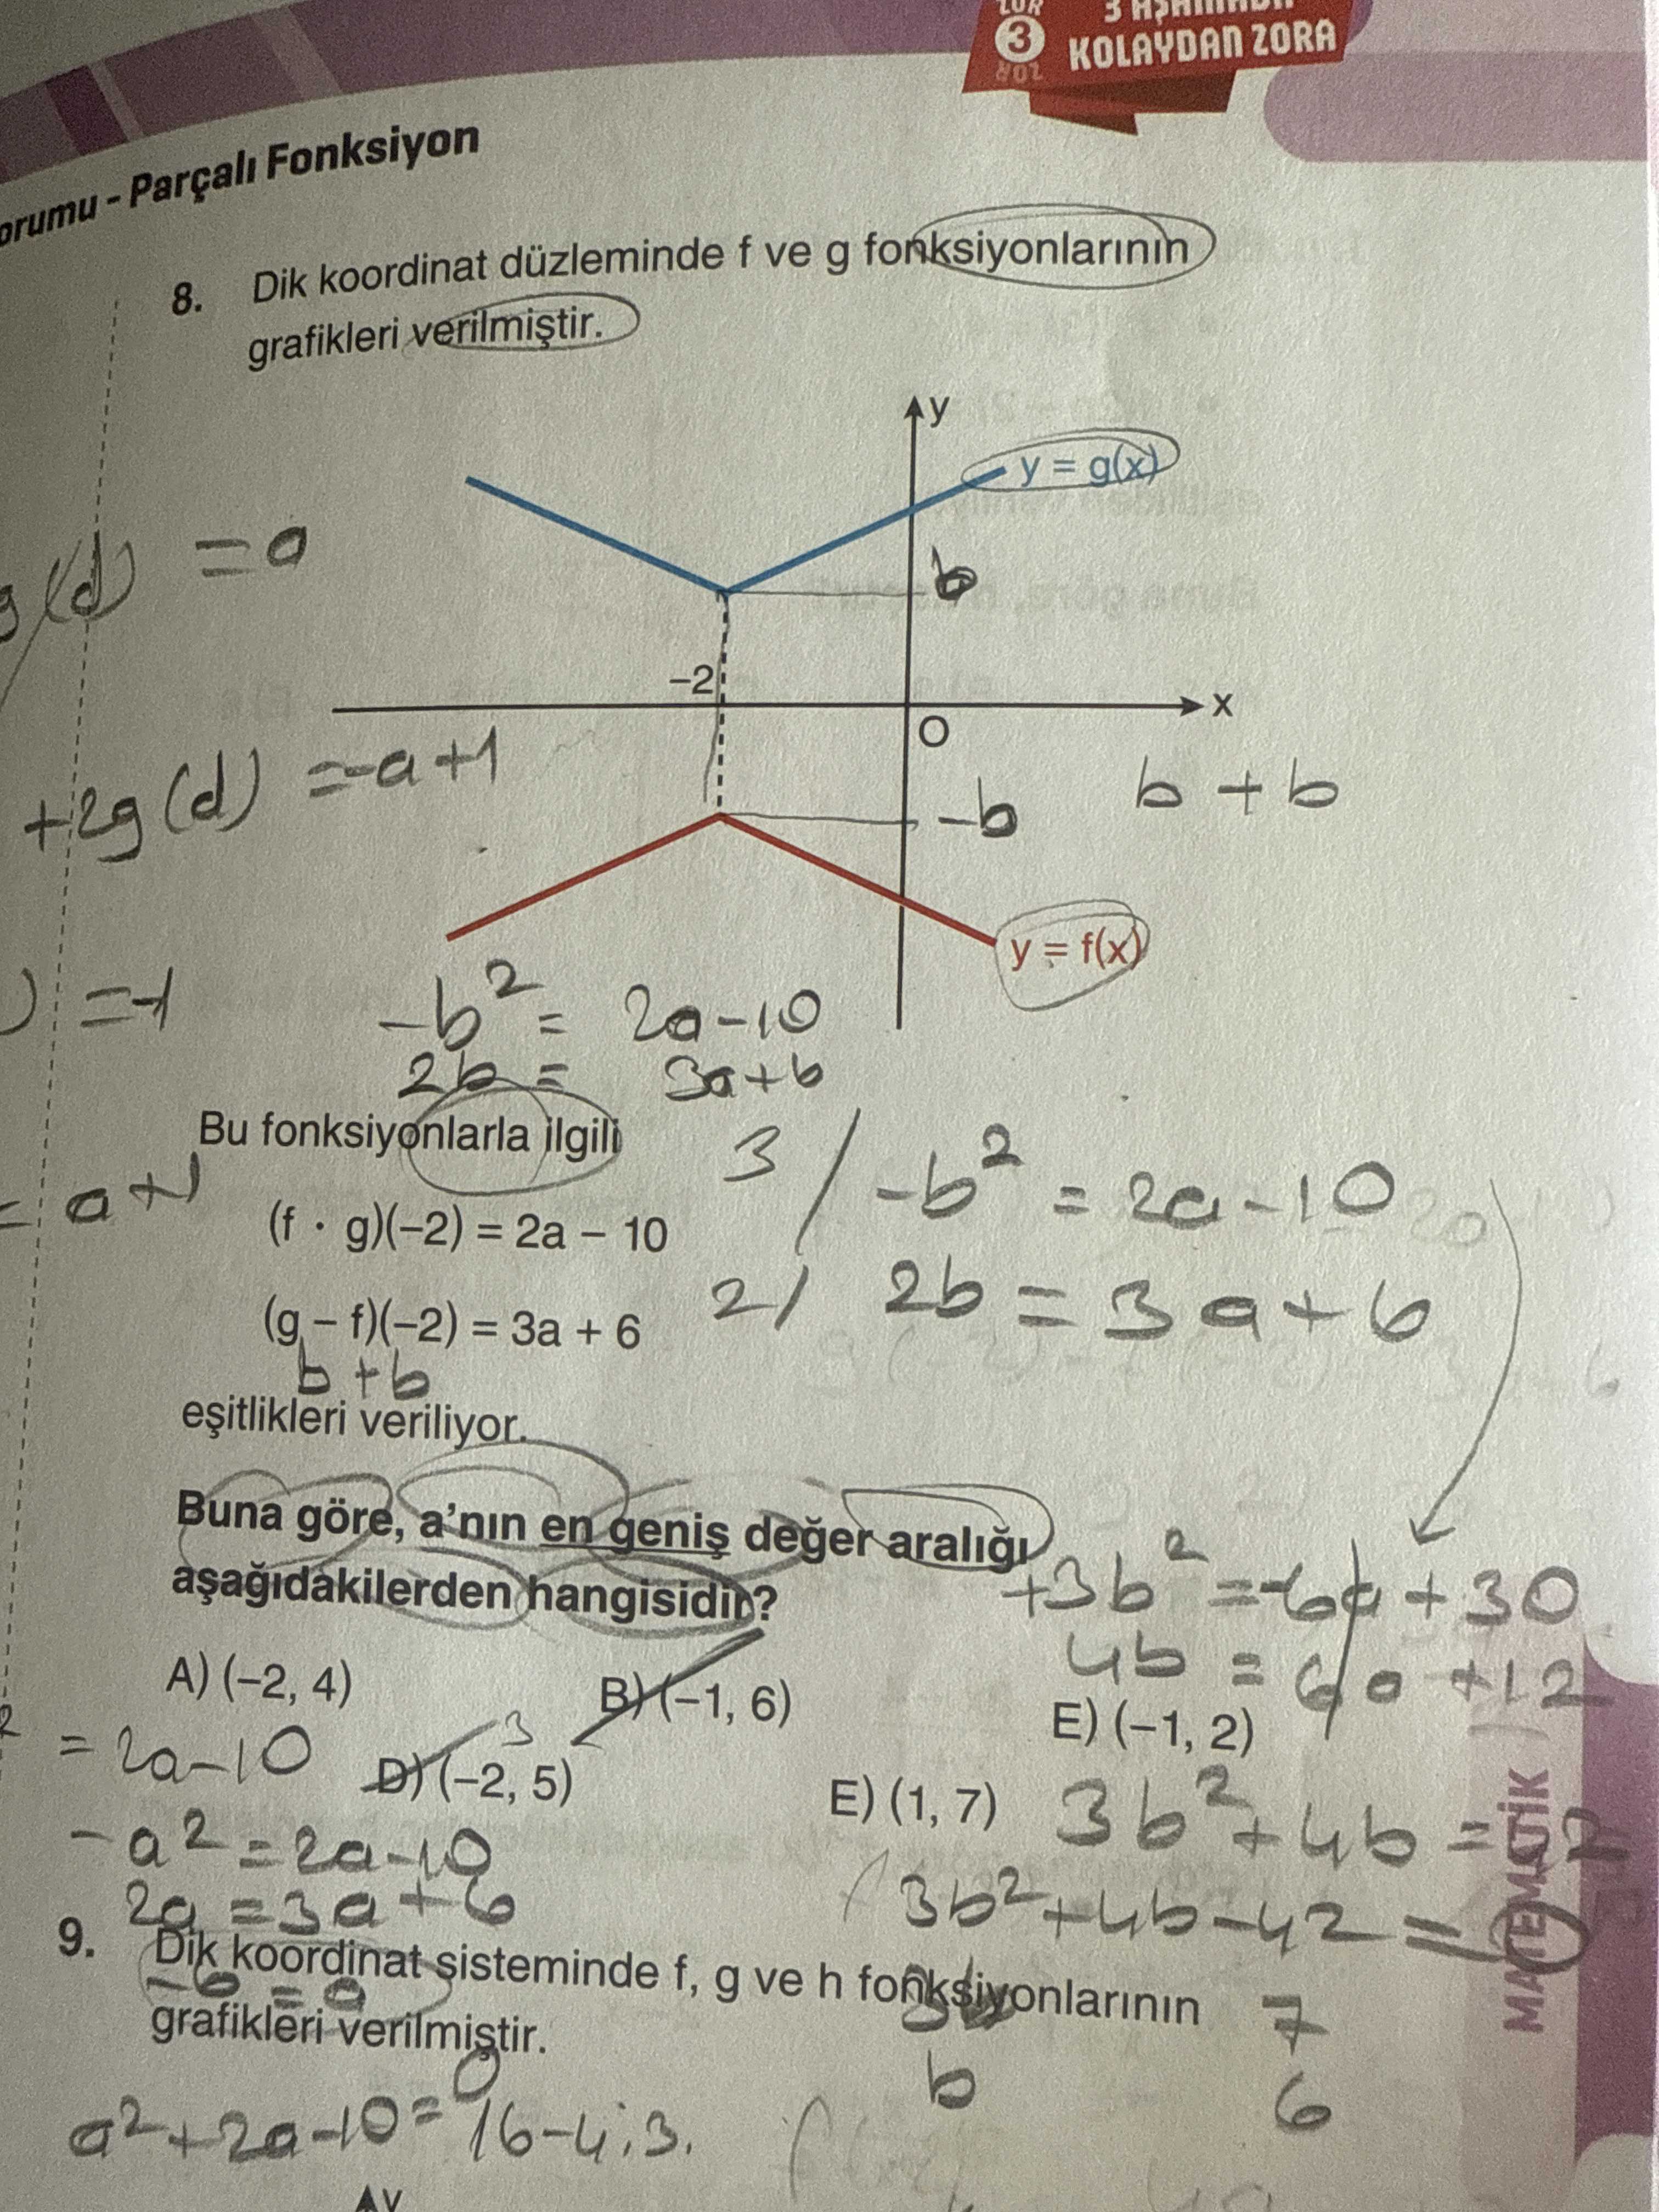 3 AŞAMADA
ZOR
3
KOLAYDAN ZORA
ZOR
orumu - Parçalı Fonksiyon
8. Dik koordinat düzleminde f ve g fonksiyonlarının
grafikleri verilmiştir.
y
y = g(x)
g(d) = a
b
-2
x
O
+2g(d) = -a+1
-b
b + b
y = f(x)
) = -1
-b² = 2a-10
2b = 3a+6
Bu fonksiyonlarla ilgili
= a+1
(f · g)(-2) = 2a - 10
3 / -b² = 2a-10
(g - f)(-2) = 3a + 6
2 / 2b = 3a+6
b + b
eşitlikleri veriliyor.
Buna göre, a'nın en geniş değer aralığı
aşağıdakilerden hangisidir?
+3b² = -6a + 30
4b = 6a + 12
A) (-2, 4)
B) (-1, 6)
E) (-1, 2)
= 2a-10
3
D) (-2, 5)
E) (1, 7)
3b² + 4b =
-a² = 2a-10
2a = 3a+6
3b²+4b-42 = 0
MATEMATİK
9. Dik koordinat sisteminde f, g ve h fonksiyonlarının
-6 = a
grafikleri verilmiştir.
3b
7
b
6
a²+2a-10 = 0
16-4.3.
y